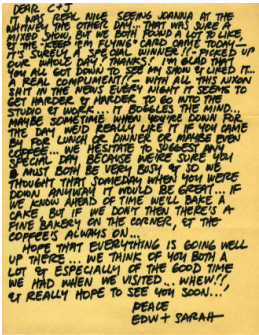 DEAR C+J
IT WAS REAL NICE SEEING JOANNA AT THE
WHITNEY THE OTHER DAY... THAT WAS SURE A
MIXED SHOW, BUT WE BOTH FOUND A LOT TO LIKE.
& THE "KEEP 'EM FLYING" CARD CAME TODAY...
IT'S SURELY A SPECIAL WINNER! & PICKED UP
OUR WHOLE DAY! THANKS! I'M GLAD THAT
YOU ALL GOT DOWN TO SEE MY SHOW & LIKED IT...
A REAL COMPLIMENT! WITH ALL THIS NIXON
SHIT IN THE NEWS EVERY NIGHT IT SEEMS TO
GET HARDER & HARDER TO GO INTO THE
STUDIO & WORK... IT BOGGLES THE MIND...
MAYBE SOMETIME WHEN YOU'RE DOWN FOR
THE DAY WE'D REALLY LIKE IT IF YOU CAME
BY FOR LUNCH OR DINNER OR MAYBE EVEN
COFFEE... WE HESITATE TO SUGGEST ANY
SPECIAL DAY, BECAUSE WE'RE SURE YOU
MUST BOTH BE VERY BUSY, & SO WE
THOUGHT THAT SOMEDAY WHEN YOU WERE
DOWN ANYWAY IT WOULD BE GREAT... IF
WE KNOW AHEAD OF TIME WE'LL BAKE A
CAKE, BUT IF WE DON'T THEN THERE'S A
FINE BAKERY ON THE CORNER, & THE
COFFEE'S ALWAYS ON...
HOPE THAT EVERYTHING IS GOING WELL
UP THERE... WE THINK OF YOU BOTH A
LOT & ESPECIALLY OF THE GOOD TIME
WE HAD WHEN WE VISITED.. WHEW!!
& REALLY HOPE TO SEE YOU SOON...!
PEACE
EDW + SARAH